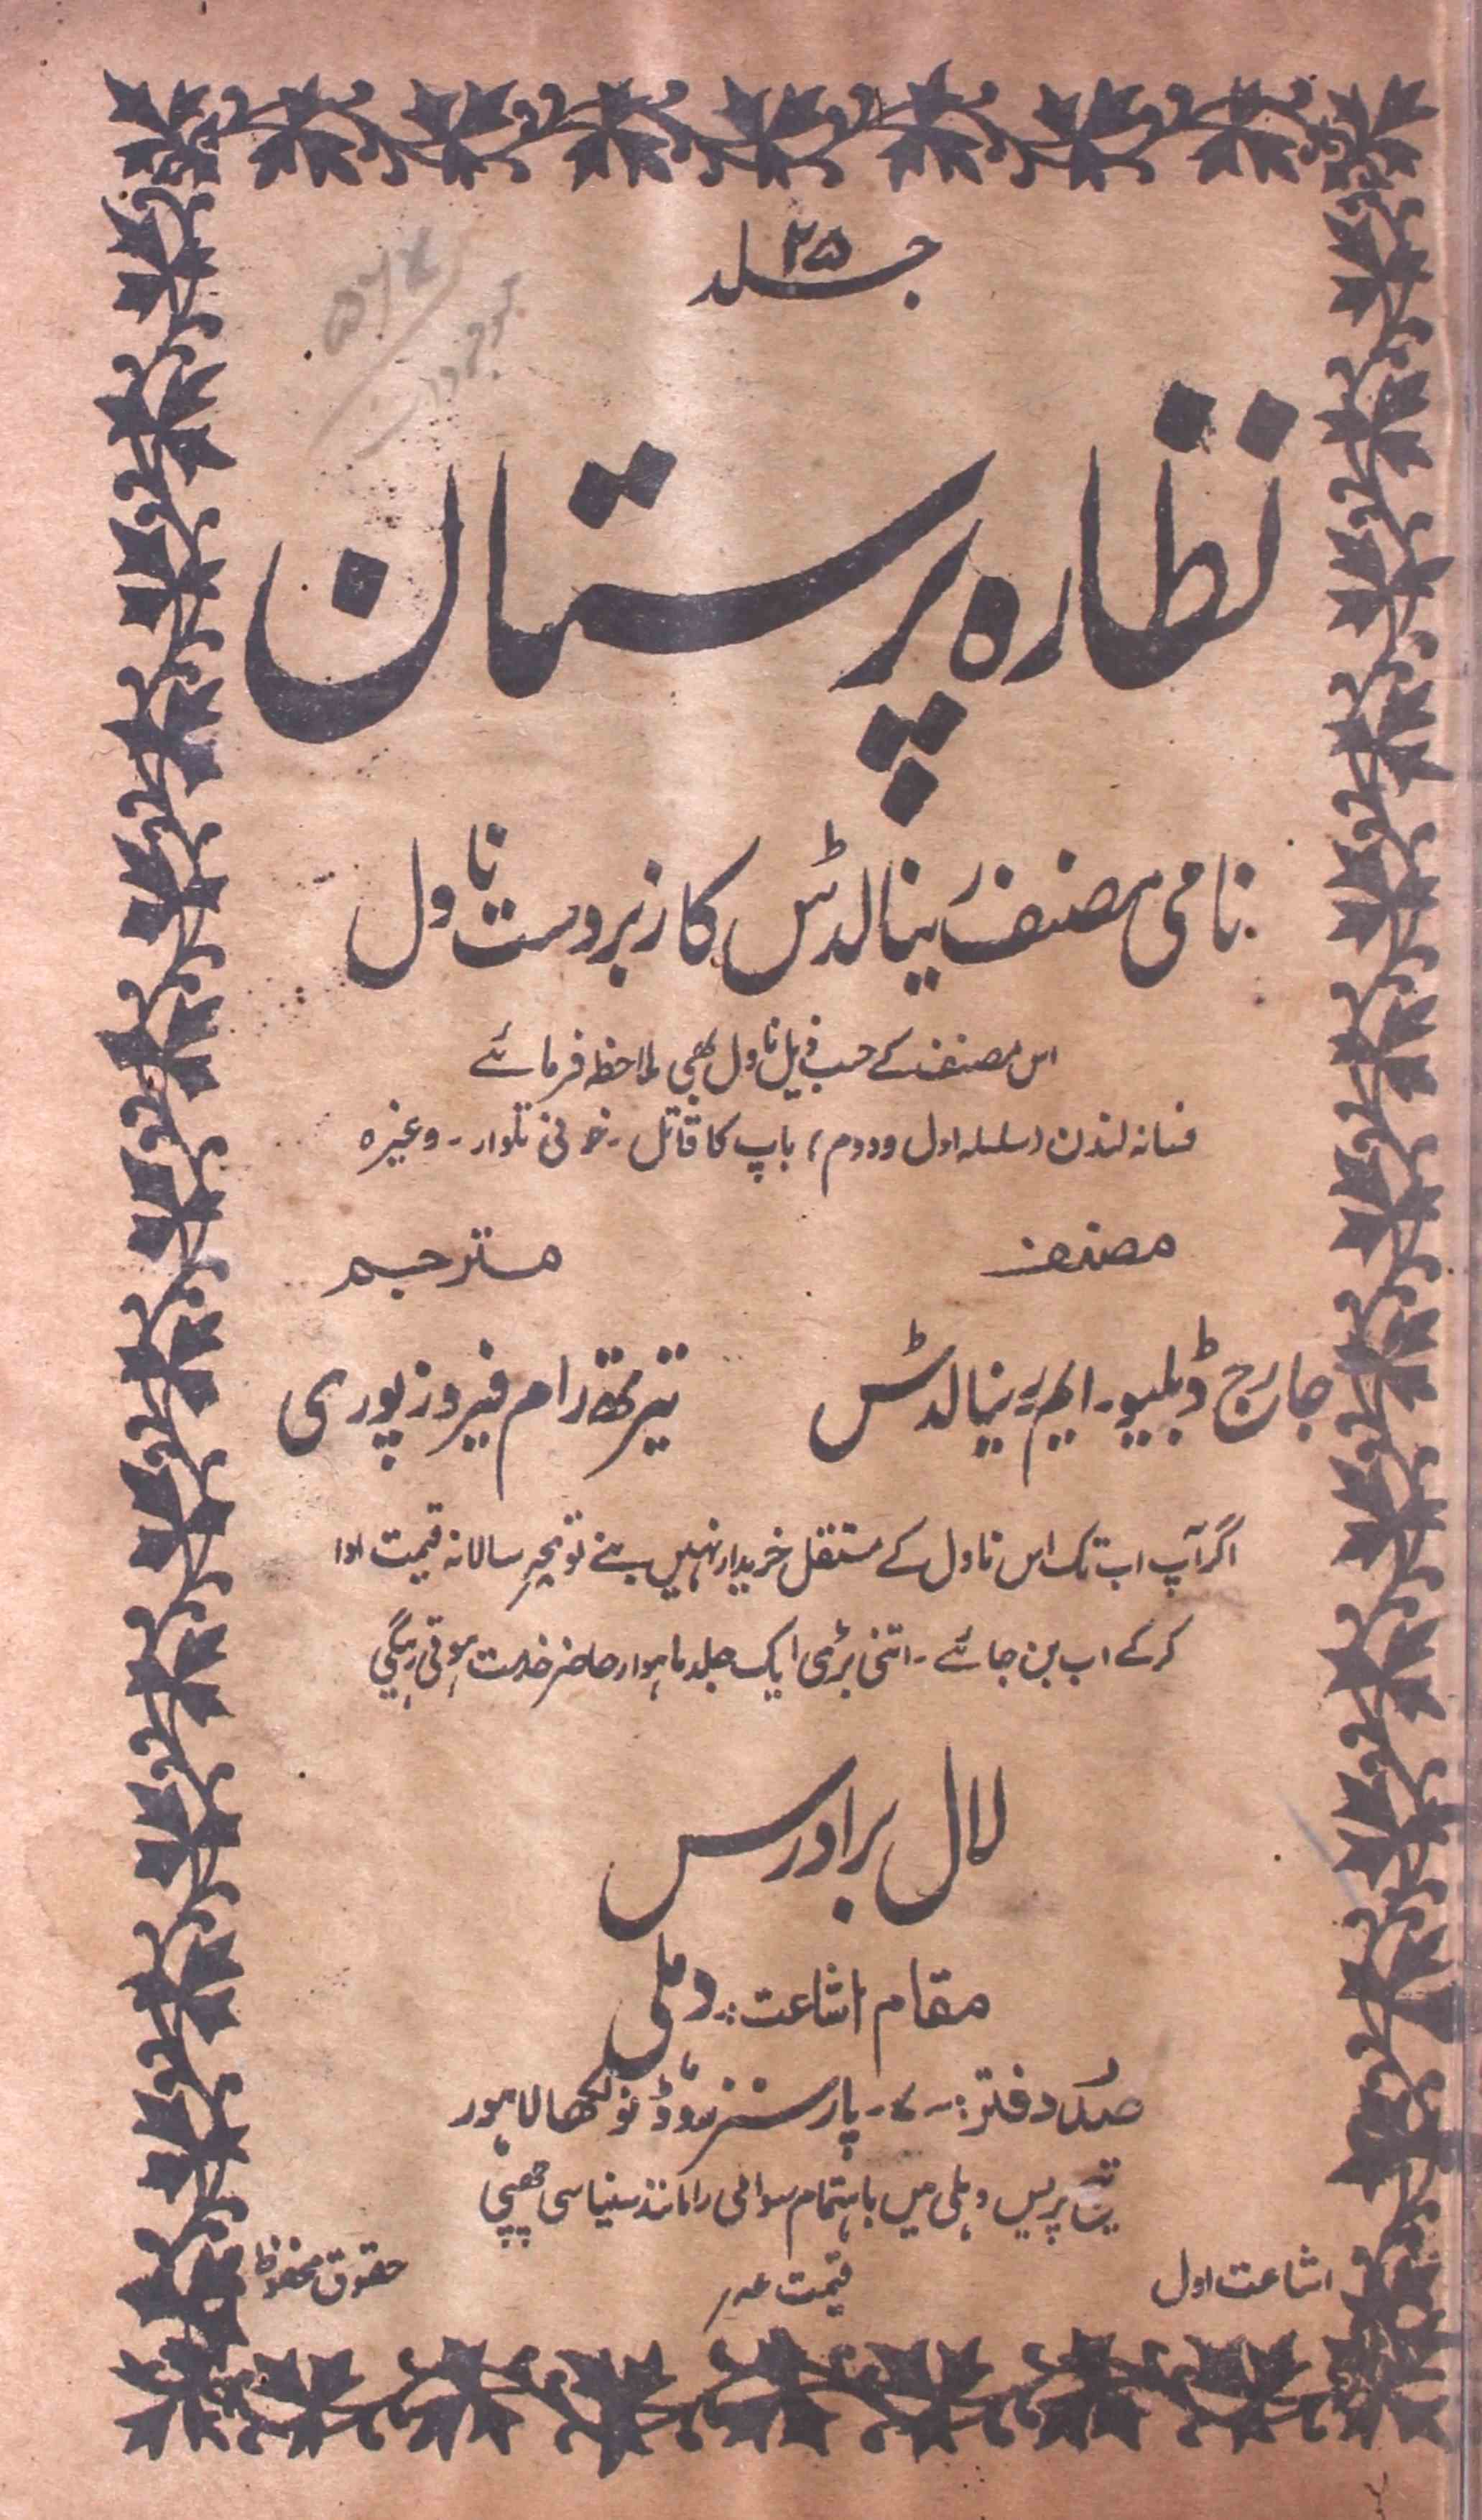 جلد ۲۵
نظارہ پرستان
نامی مصنف رینالڈس کا زبردست ناول
اس مصنف کے حسب ذیل ناول بھی ملاحظہ فرمائے
فسانہ لندن (سلسلہ اول و دوم) باپ کا قاتل - خونی تلوار - وغیرہ
مصنف مترجم
جارج ڈبلیو - ایم رینالڈس تیرتھ رام فیروز پوری
اگر آپ اب تک اس ناول کے مستقل خریدار نہیں بنے تو سالانہ قیمت ادا
کر کے اب بن جائے - اتنی بڑی ایک جلد ماہوار حاضر خدمت ہوتی رہیگی
لال برادرس
مقام اشاعت :- دہلی
صدر دفتر :- ۷ - پارسنز روڈ نولکھا لاہور
تیج پریس دہلی میں باہتمام سوامی رامانند سنیاسی چھپی
اشاعت اول قیمت عہ ر حقوق محفوظ